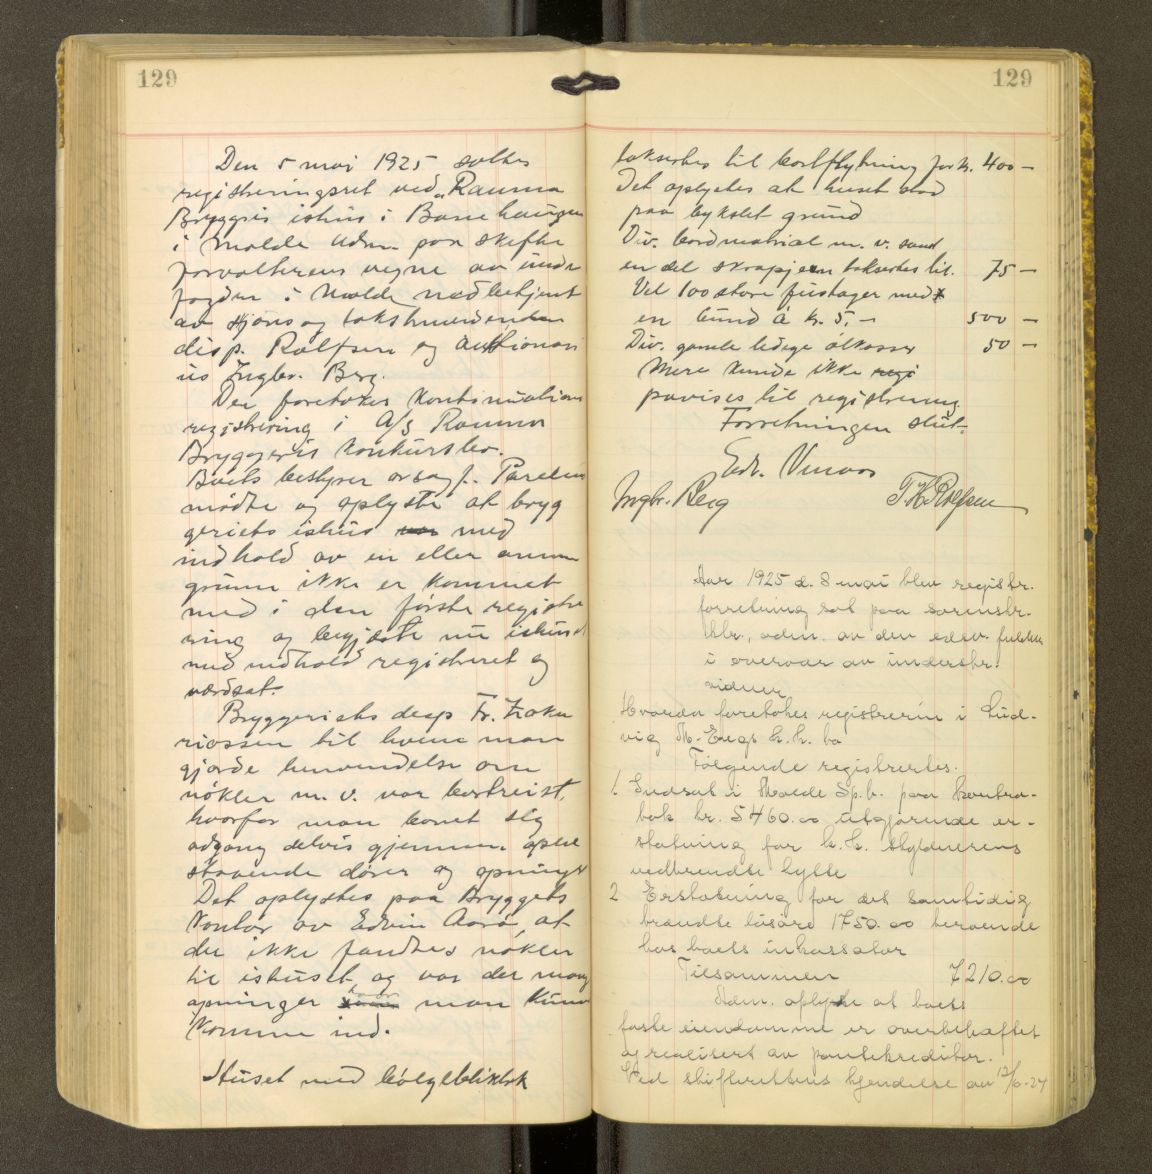 129
Den 5 mai 1925 sattes
registreringsret ved „Rauma
Bryggeris ishus i Banehaugen
i Molde adm. paa skifte
forvalterens vegne av under
fogden i Molde med betjent
av skjøns og takstmændene
disp. Rolfsen og auktionari
us Ingbr. Berg.
Der foretokes kontinuations
registrering i A/S Rauma
Bryggeris konkursbo.
Boets bestyrer ovsagf.
møtte og oplyste at bryg
geriets ishus med
indhold av en eller annen
grunn ikke er kommet
med i den første registre
ring og begjærte nu ishuset
med indhold registreret og
værdsat.
Bryggeriets disp Fr. Zaka
riassen til hvem man
gjorde henvendelse om
nøkler m. v. var bortreist,
hvorfor man banet sig
adgang delvis gjennem apne
staaende dører og apninger
Det oplystes paa Bryggeriets
kontor av Edvin Aarø, at
der ikke fandtes nøkler
til ishuset, og var der mange
apninger hvor man kunde
komme ind.
Huset med bølgebliktak
129
taksertes til bortflytning for kr. 400 –
Det oplystes at huset stod
paa bykslet grund
Div. bordmatrial m. v. samt
en del skrapjern taksertes til. 75 –
Vel 100 store fustager med
en bund á kr. 5. – 500 –
Div. gamle ledige ølkasser 50 –
Mere kunde ikke regi
paavises til registrering
Forretningen slut.
Edr.
Ingbr. Berg Th. Rolfsen
Aar 1925 d. 8 mai blev registr.
forretning sat paa sorenskr.
ktr., adm. av den edsv. fuldm.
i overvær av underskr.
vidner
Hvorda foretokes registrering i Lud-
vig M. Engs k. k. bo
Følgende registrertes.
1. Indsat i Molde Sp.b. paa kontra-
bok kr. 5460.00 utgjørende er-
statning for k. k. skyldnerens
nedbrendte hytte
2 Erstatning for det samtidig
brændte løsøre 1750.00 beroende
hos boets inkassator
Tilsammen 7210.00
Adm. oplyste at boets
faste eiendomme er overbehæftet
og realisert av pantekreditor.
Ved skifterettens kjendelse av 12/6-24